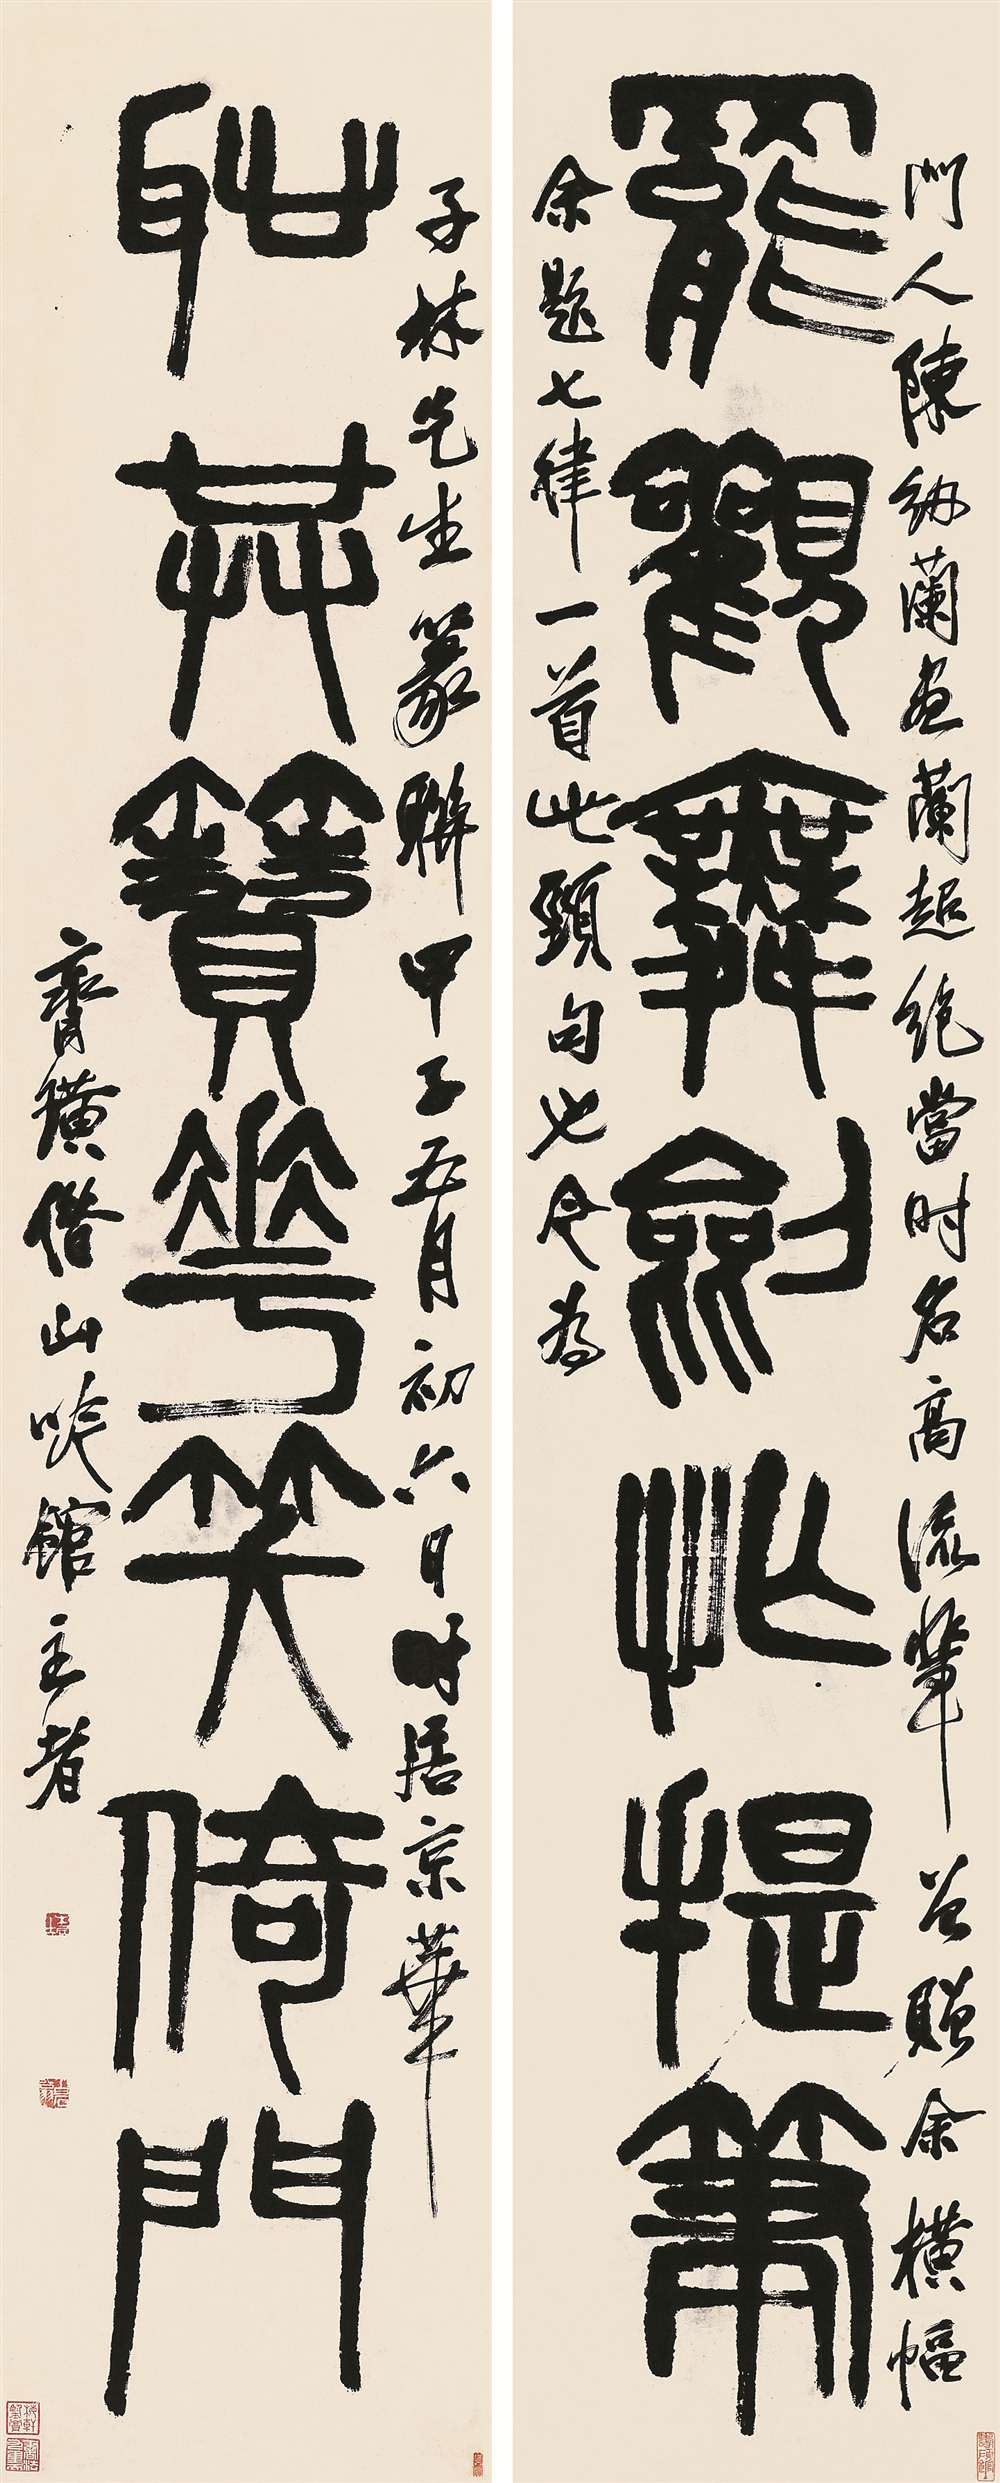 門人陳紉蘭畫蘭超絕當时名高流輩㠯贈余橫幅
罷觀舞劍忙提筆
余題七律一首此頸句也今為
子林先生篆聯甲子五月初六日时居京華
耻共簪花笑倚門
齊璜借山吟館主者